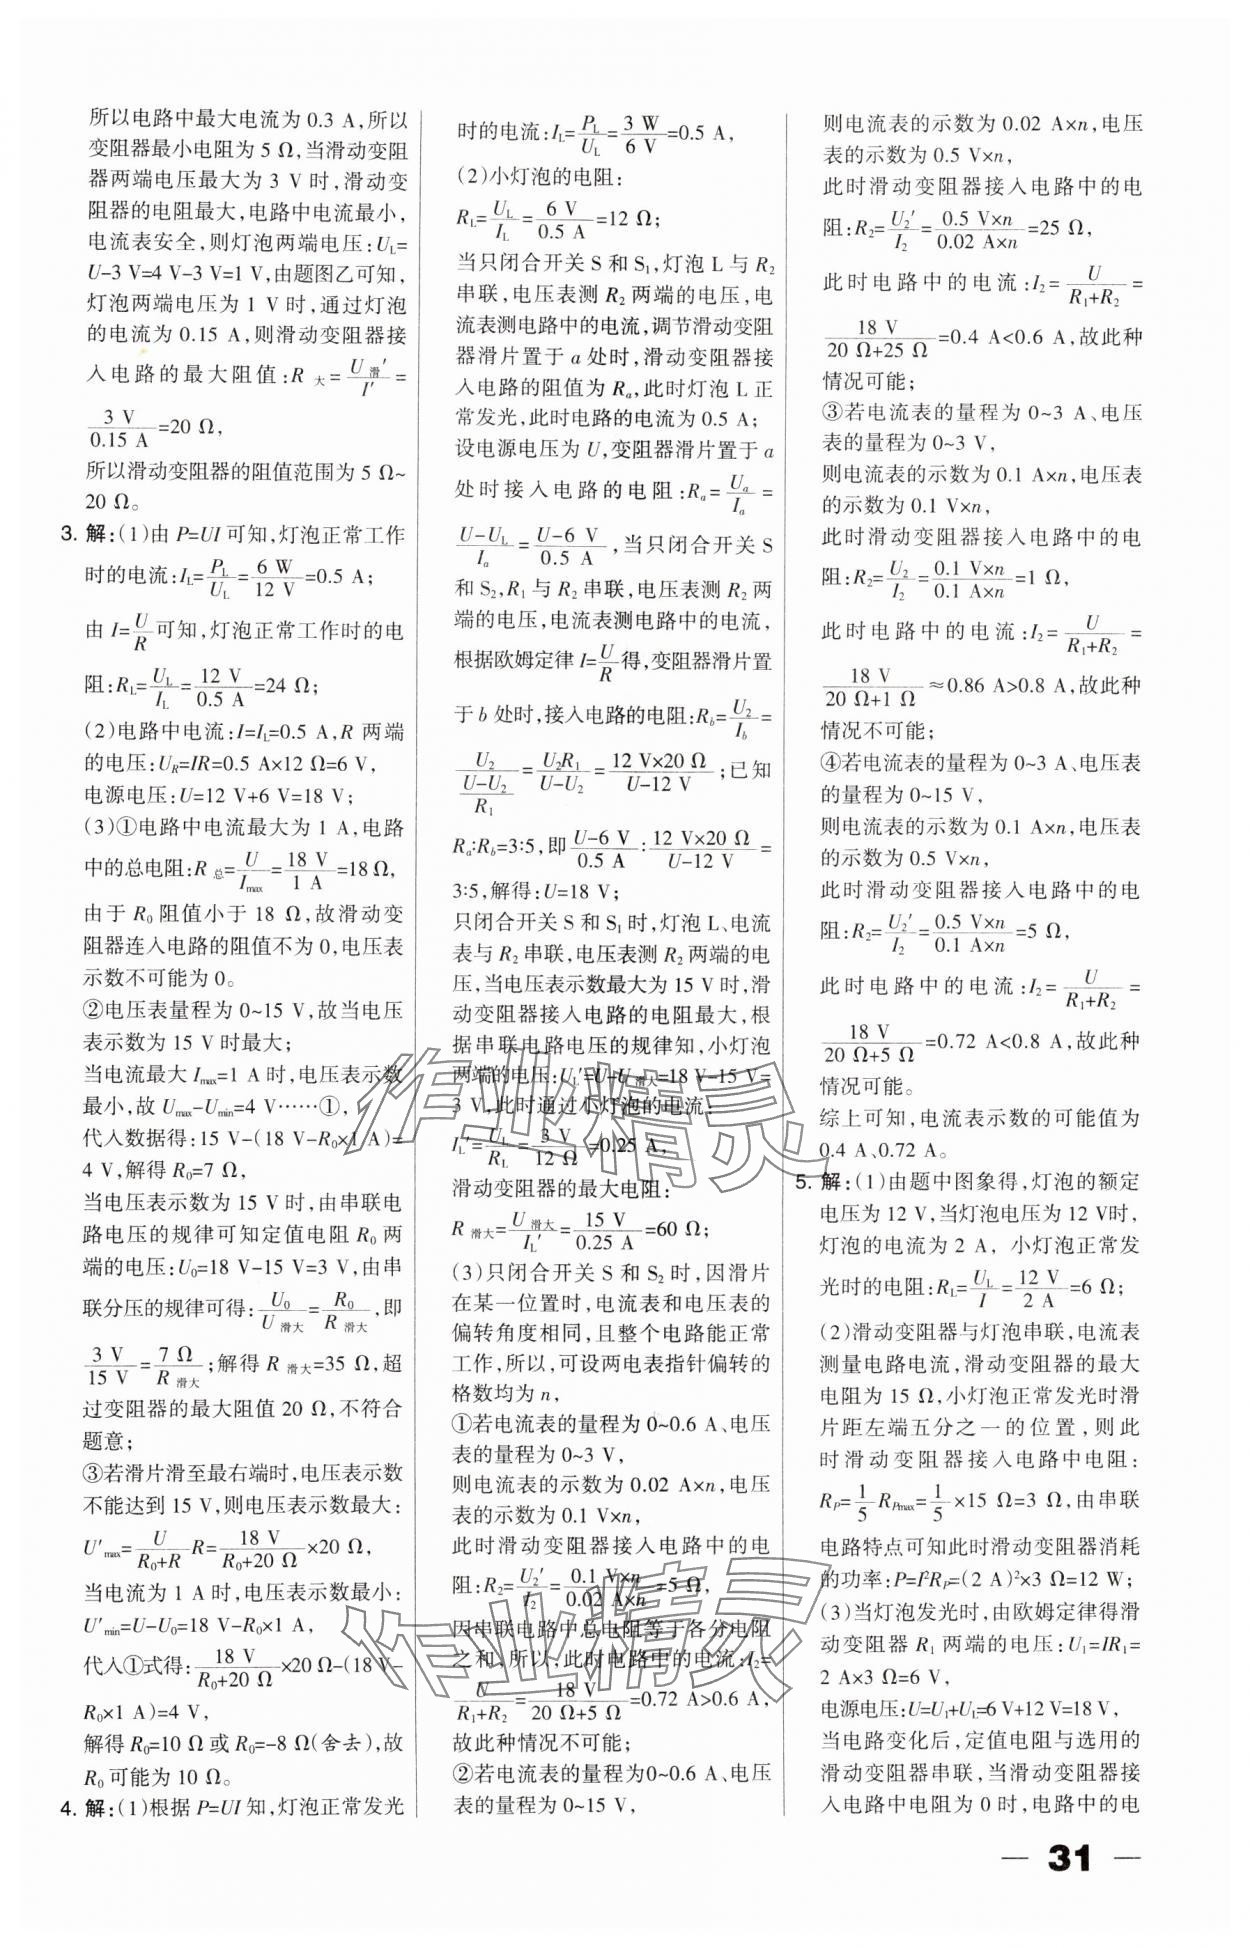 所以电路中最大电流为 0.3 A,所以
变阻器最小电阻为 5 Ω,当滑动变阻
器两端电压最大为 3 V 时,滑动变
阻器的电阻最大,电路中电流最小,
电流表安全,则灯泡两端电压:U_L=
U-3 V=4 V-3 V=1 V,由题图乙可知,
灯泡两端电压为 1 V 时,通过灯泡
的电流为 0.15 A,则滑动变阻器接
入电路的最大阻值:R大=U滑′/I′=
3 V/0.15 A=20 Ω,
所以滑动变阻器的阻值范围为 5 Ω~
20 Ω。
3. 解:(1)由 P=UI 可知,灯泡正常工作
时的电流:I_L=P_L/U_L=6 W/12 V=0.5 A;
由 I=U/R可知,灯泡正常工作时的电
阻:R_L=U_L/I_L=12 V/0.5 A=24 Ω;
(2)电路中电流:I=I_L=0.5 A,R 两端
的电压:U_R=IR=0.5 A×12 Ω=6 V,
电源电压:U=12 V+6 V=18 V;
(3)①电路中电流最大为 1 A,电路
中的总电阻:R总=U/I_max=18 V/1 A=18 Ω,
由于 R₀ 阻值小于 18 Ω,故滑动变
阻器连入电路的阻值不为 0,电压表
示数不可能为 0。
②电压表量程为 0~15 V,故当电压
表示数为 15 V 时最大;
当电流最大 I_max=1 A 时,电压表示数
最小,故 U_max-U_min=4 V……①,
代入数据得:15 V-(18 V-R₀×1 A)=
4 V,解得 R₀=7 Ω,
当电压表示数为 15 V 时,由串联电
路电压的规律可知定值电阻 R₀ 两
端的电压:U₀=18 V-15 V=3 V,由串
联分压的规律可得:U₀/U滑大=R₀/R滑大,即
3 V/15 V=7 Ω/R滑大;解得 R滑大=35 Ω,超
过变阻器的最大阻值 20 Ω,不符合
题意;
③若滑片滑至最右端时,电压表示数
不能达到 15 V,则电压表示数最大:
U′_max=U/(R₀+R) R=18 V/(R₀+20 Ω)×20 Ω,
当电流为 1 A 时,电压表示数最小:
U′_min=U-U₀=18 V-R₀×1 A,
代入①式得:18 V/(R₀+20 Ω)×20 Ω-(18 V-
R₀×1 A)=4 V,
解得 R₀=10 Ω 或 R₀=-8 Ω(舍去),故
R₀ 可能为 10 Ω。
4. 解:(1)根据 P=UI 知,灯泡正常发光
时的电流:I_L=P_L/U_L=3 W/6 V=0.5 A,
(2)小灯泡的电阻:
R_L=U_L/I_L=6 V/0.5 A=12 Ω;
当只闭合开关 S 和 S₁,灯泡 L 与 R₂
串联,电压表测 R₂ 两端的电压,电
流表测电路中的电流,调节滑动变阻
器滑片置于 a 处时,滑动变阻器接
入电路的阻值为 R_a,此时灯泡 L 正
常发光,此时电路的电流为 0.5 A;
设电源电压为 U,变阻器滑片置于 a
处时接入电路的电阻:R_a=U_a/I_a=
(U-U_L)/I_a=(U-6 V)/0.5 A,当只闭合开关 S
和 S₂,R₁ 与 R₂ 串联,电压表测 R₂ 两
端的电压,电流表测电路中的电流,
根据欧姆定律 I=U/R得,变阻器滑片置
于 b 处时,接入电路的电阻:R_b=U₂/I_b=
U₂/((U-U₂)/R₁)=U₂R₁/(U-U₂)=12 V×20 Ω/(U-12 V);已知
R_a:R_b=3:5,即(U-6 V)/0.5 A:12 V×20 Ω/(U-12 V)=
3:5,解得:U=18 V;
只闭合开关 S 和 S₁ 时,灯泡 L、电流
表与 R₂ 串联,电压表测 R₂ 两端的电
压,当电压表示数最大为 15 V 时,滑
动变阻器接入电路的电阻最大,根
据串联电路电压的规律知,小灯泡
两端的电压:U_L′=U-U滑大=18 V-15 V=
3 V,此时通过小灯泡的电流:
I_L′=U_L′/R_L=3 V/12 Ω=0.25 A,
滑动变阻器的最大电阻:
R滑大=U滑大/I_L′=15 V/0.25 A=60 Ω;
(3)只闭合开关 S 和 S₂ 时,因滑片
在某一位置时,电流表和电压表的
偏转角度相同,且整个电路能正常
工作,所以,可设两电表指针偏转的
格数均为 n,
①若电流表的量程为 0~0.6 A、电压
表的量程为 0~3 V,
则电流表的示数为 0.02 A×n,电压
表的示数为 0.1 V×n,
此时滑动变阻器接入电路中的电
阻:R₂=U₂′/I₂=0.1 V×n/0.02 A×n=5 Ω,
因串联电路中总电阻等于各分电阻
之和,所以,此时电路中的电流:I₂=
U/(R₁+R₂)=18 V/(20 Ω+5 Ω)=0.72 A>0.6 A,
故此种情况不可能;
②若电流表的量程为0~0.6 A、电压
表的量程为 0~15 V,
则电流表的示数为 0.02 A×n,电压
表的示数为 0.5 V×n,
此时滑动变阻器接入电路中的电
阻:R₂=U₂′/I₂=0.5 V×n/0.02 A×n=25 Ω,
此时电路中的电流:I₂=U/(R₁+R₂)=
18 V/(20 Ω+25 Ω)=0.4 A<0.6 A,故此种
情况可能;
③若电流表的量程为 0~3 A、电压
表的量程为 0~3 V,
则电流表的示数为 0.1 A×n,电压表
的示数为 0.1 V×n,
此时滑动变阻器接入电路中的电
阻:R₂=U₂/I₂=0.1 V×n/0.1 A×n=1 Ω,
此时电路中的电流:I₂=U/(R₁+R₂)=
18 V/(20 Ω+1 Ω)≈0.86 A>0.8 A,故此种
情况不可能;
④若电流表的量程为 0~3 A、电压表
的量程为 0~15 V,
则电流表的示数为 0.1 A×n,电压表
的示数为 0.5 V×n,
此时滑动变阻器接入电路中的电
阻:R₂=U₂′/I₂=0.5 V×n/0.1 A×n=5 Ω,
此时电路中的电流:I₂=U/(R₁+R₂)=
18 V/(20 Ω+5 Ω)=0.72 A<0.8 A,故此种
情况可能。
综上可知,电流表示数的可能值为
0.4 A、0.72 A。
5. 解:(1)由题中图象得,灯泡的额定
电压为 12 V,当灯泡电压为 12 V时,
灯泡的电流为 2 A, 小灯泡正常发
光时的电阻:R_L=U_L/I=12 V/2 A=6 Ω;
(2)滑动变阻器与灯泡串联,电流表
测量电路电流,滑动变阻器的最大
电阻为 15 Ω,小灯泡正常发光时滑
片距左端五分之一的位置,则此
时滑动变阻器接入电路中电阻:
R_P=1/5 R_Pmax=1/5×15 Ω=3 Ω,由串联
电路特点可知此时滑动变阻器消耗
的功率:P=I²R_P=(2 A)²×3 Ω=12 W;
(3)当灯泡发光时,由欧姆定律得滑
动变阻器 R₁ 两端的电压:U₁=IR₁=
2 A×3 Ω=6 V,
电源电压:U=U₁+U_L=6 V+12 V=18 V,
当电路变化后,定值电阻与选用的
滑动变阻器串联,当滑动变阻器接
入电路中电阻为 0 时,电路中的电
作业精灵
作业精灵
31